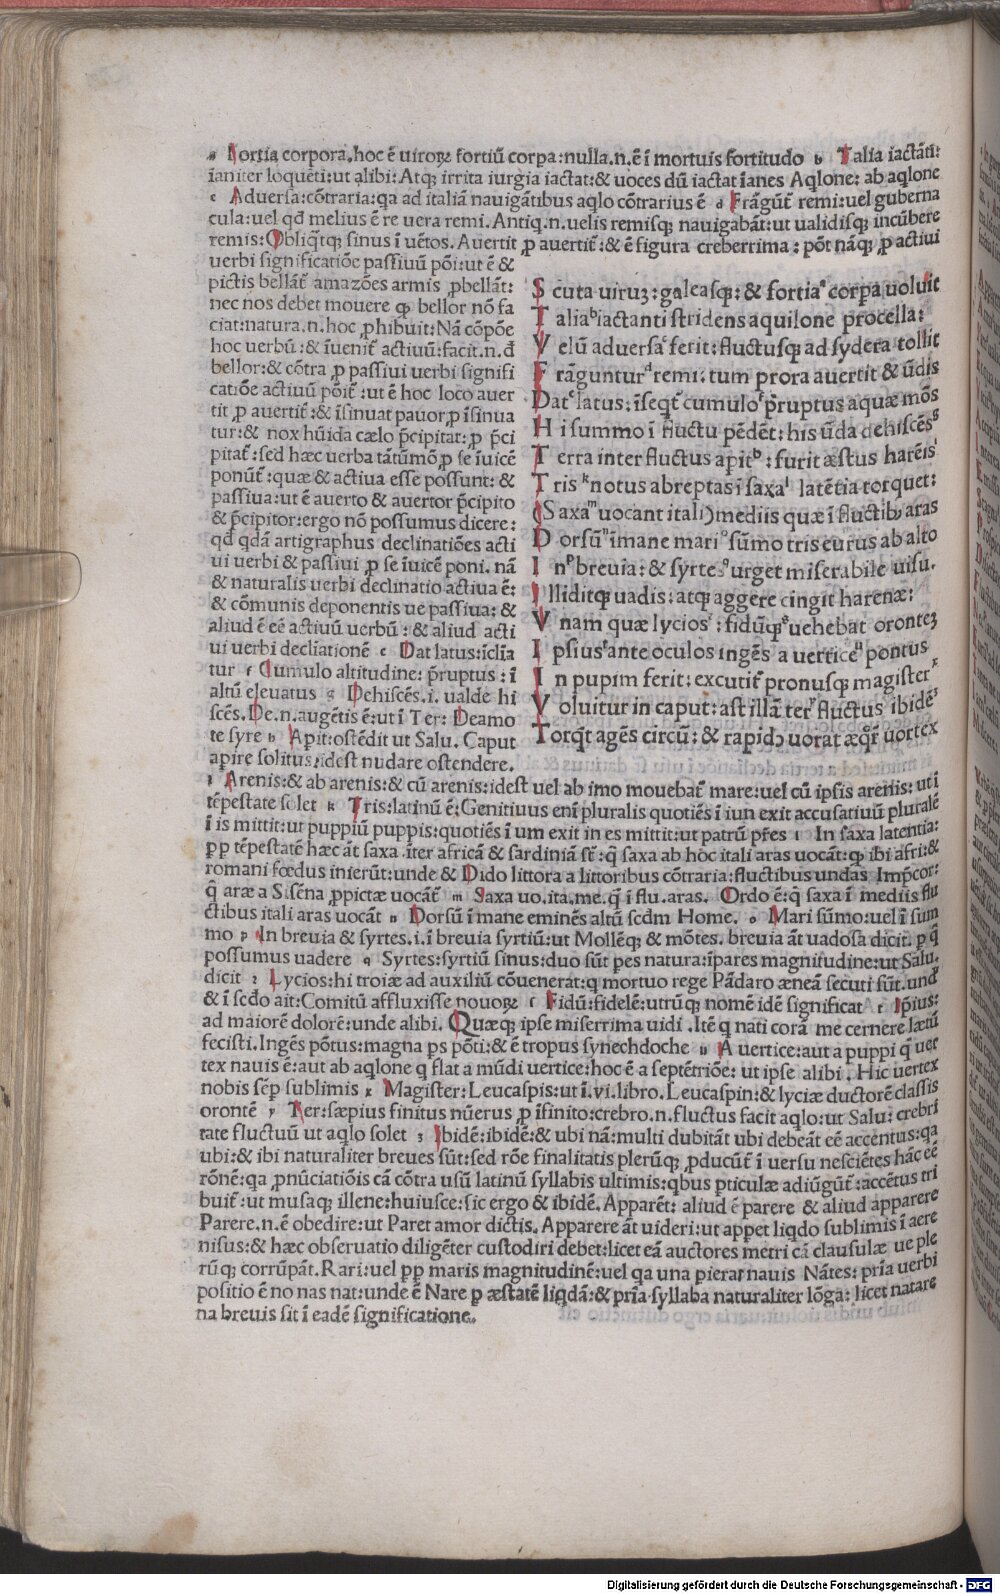 a Fortia corpora.hoc ē uiroꝝ fortiū corpa:nulla.n.ē ī mortuis fortitudo b Talia iactāti:
īaniter loquēti:ut alibi:Atqꝫ irrita iurgia iactat:& uoces dū iactat īanes Aqlone: ab aqlone
c Aduersa:cōtraria:qa ad italiā nauigātibus aqlo cōtrarius ē d Frāgūt̄ remi:uel guberna
cula:uel qđ melius ē re uera remi. Antiq.n.uelis remisqꝫ nauigabāt:ut ualidisqꝫ incūbere
remis:Obliq̄tqꝫ sinus ī uētos. Auertit ꝓ auertit̄:& ē figura creberrima: pōt nāqꝫ ꝓ actiui
uerbi significatiōe passiuū pōi:ut ē &
pictis bellāt̄ amazōes armis ꝓbellāt:
nec nos debet mouere qꝙ bellor nō fa
ciat:natura.n.hoc ꝓhibuit:Nā cōpōe
hoc uerbū:& īuenit̄ actiuū:facit.n.đ
bellor:& cōtra ꝓ passiui uerbi signifi
catiōe actiuū pōit̄ :ut ē hoc loco auer
tit ꝓ auertit̄:& īsinuat pauor ꝓ īsinua
tur:& nox hūida cælo p̄cipitat: ꝓ p̄ci
pitat̄:sed hæc uerba tātūmō ꝓ se īuicē
ponūt̄:quæ & actiua esse possunt: &
passiua:ut ē auerto & auertor p̄cipito
& p̄cipitor:ergo nō possumus dicere:
qđ qdā artigraphus declinatiōes acti
ui uerbi & passiui ꝓ se īuicē poni. nā
& naturalis uerbi declinatio actiua ē:
& cōmunis deponentis ue passiua: &
aliud ē eē actiuū uerbū : & aliud acti
ui uerbi decliationē e Dat latus:īclīa
tur f Cumulo altitudine: p̄ruptus : ī
altū eleuatus g Dehiscēs.i. ualde hi
scēs.De.n.augētis ē:ut ī Ter: Deamo
te syre h Apit:ostēdit ut Salu. Caput
apire solitus:idest nudare ostendere.
S cuta uiruꝫ:galeasqꝫ: & fortiaᵃ corꝑa uoluit
T aliaᵇiactanti stridens aquilone procella:
V elū aduersaᶜ ferit:fluctusqꝫ ad sydera tollit
F rāgunturᵈ remi: tum prora auertit & ūdis
D atᵉ latus: īseqt̄ cumuloᶠ p̄ruptus aquæ mōs
H i summo ī fluctu pēdēt: his ūda dehiscēsᵍ
T erra inter fluctus apitʰ : furit æstus harēisⁱ
T risᵏ notus abreptas ī saxaˡ latētia torquet:
(S axaᵐ uocant itali) mediis quæ ī fluctibꝰ aras
D orsūⁿ īmane mariᵒ sūmo tris eurus ab alto
I nᵖ breuia: & syrtes urget miserabile uisu.
I lliditqꝫ uadis: atqꝫ aggere cingit harenæ:
V nam quæ lyciosʳ : fidūqꝫˢ uehebat oronteꝫ
I psiusᵗ ante oculos ingēs a uerticeᵘ pontus
I n pupim ferit: excutit̄ pronusqꝫ magisterˣ
V oluitur in caput: ast illā terʸ fluctus ibidēᶻ
T orqt̄ agēs circū: & rapidꝰ uorat æqꝛ uortex
i Arenis:& ab arenis:& cū arenis:idest uel ab imo mouebat̄ mare:uel cū ipsis arenis: ut ī
tēpestate solet k Tris:latinū ē:Genitiuus enī pluralis quotiēs ī iun exit accusatiuū pluralē
ī is mittit:ut puppiū puppis:quotiēs ī um exit in es mittit:ut patrū p̄res l In saxa latentia:
ꝓp tēpestatē hæc āt saxa īter africā & sardiniā st̄:q̄ saxa ab hoc itali aras uocāt:qꝙ ibi afri:&
romani fœdus inierūt:unde & Dido littora a littoribus cōtraria:fluctibus undas Imp̄cor:
q̄ aræ a Sisēna ꝓpictæ uocāt̄ m Saxa uo.ita.me.q̄ ī flu.aras. Ordo ē:q̄ saxa ī mediis flu
ctibus itali aras uocāt n Dorsū ī mane eminēs altū scdm Home. o Mari sūmo:uel ī sum
mo p In breuia & syrtes.i.ī breuia syrtiū:ut Mollēqꝫ & mōtes. breuia āt uadosa dicit. ꝑ q̄
possumus uadere q Syrtes:syrtiū sinus:duo sūt pes natura:īpares magnitudine:ut Salu.
dicit r Lycios:hi troiæ ad auxiliū cōuenerāt:q mortuo rege Pādaro æneā secuti sūt.unđ
& ī scđo ait:Comitū affluxisse nouoꝝ s Fidū:fidelē:utrūqꝫ nomē idē significat t Ipsius:
ad maiorē dolorē:unde alibi. Quæqꝫ ipse miserrima uidi .Itē q nati corā me cernere lætū
fecisti.Ingēs pōtus:magna ps pōti:& ē tropus synechdoche u A uertice:aut a puppi q̄ uer
tex nauis ē:aut ab aqlone q flat a mūdi uertice:hoc ē a septētriōe: ut ipse alibi . Hic uertex
nobis sēp sublimis x Magister:Leucaspis:ut ī.vi.libro.Leucaspin:& lyciæ ductorē classis
orontē y Ter:sæpius finitus nūerus ꝓ īfinito:crebro.n.fluctus facit aqlo:ut Salu: crebri
tate fluctuū ut aqlo solet z Ibidē:ibidē:& ubi nā:multi dubitāt ubi debeāt eē accentus:qa
ubi:& ibi naturaliter breues sūt:sed rōe finalitatis plerūqꝫ ꝓducūt̄ ī uersu nesciētes hāc eē
rōnē:qa ꝓnūciatiōis cā cōtra usū latinū syllabis ultimis:qbus pticulæ adiūgūt̄:accētus tri
buit̄ :ut musaqꝫ illene:huiusce:sic ergo & ibidē. Apparēt: aliud ē parere & aliud apparere
Parere.n.ē obedire:ut Paret amor dictis. Apparere āt uideri:ut appet liqdo sublimis ī aere
nisus:& hæc obseruatio diligēter custodiri debet:licet eā auctores metri cā clausulæ ue ple
rūqꝫ corrūpāt.Rari:uel ꝓp maris magnitudinē:uel qa una pierat nauis Nātes: pr̄ia uerbi
positio ē no nas nat:unde ē Nare ꝑ æstatē liqdā:& pr̄ia syllaba naturaliter lōga: licet natare
na breuis sit ī eadē significatione.
Digitalisierung gefördert durch die Deutsche Forschungsgemeinschaft - DFG